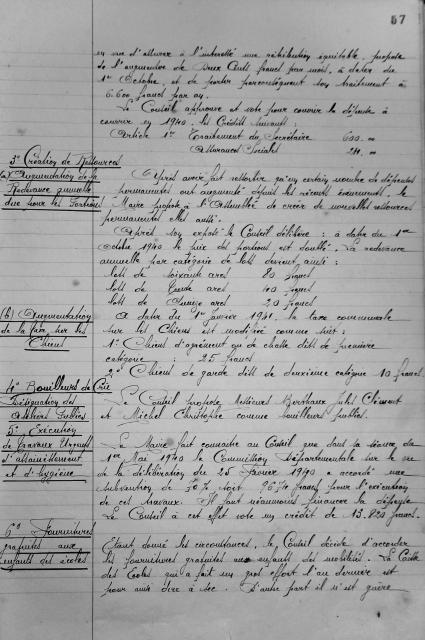 67
en vue d'assurer à l'intéressé une rétribution équitable, propose
de l'augmenter de Deux Cents francs par mois, à dater du
1er Octobre, et de porter par conséquent son traitement à
6.600 francs par an.
Le Conseil approuve et vote pour couvrir la dépense à
courir en 1940, les Crédits suivants :
Article 1er Traitement du Secrétaire 600.00
Assurances Sociales
3° Création de Ressources
a) Augmentation de la
Redevance annuelle
due pour les Portions
Après avoir fait ressortir qu'un certain nombre de dépenses
permanentes ont augmenté depuis les récents événements, le
Maire propose à l'Assemblée de créer de nouvelles ressources
permanentes elles aussi.
Après son exposé le Conseil délibère : à dater du 1er
Octobre 1940 le prix des portions est doublé. La redevance
annuelle par catégorie de lots devient ainsi :
lots de soixante ares 80 francs
lots de trente ares 40 francs
lots de quinze ares 20 francs
(b) Augmentation
de la taxe sur les
Chiens
A dater du 1er Janvier 1941, la taxe communale
sur les Chiens est modifiée comme suit :
1° Chiens d'agrément ou de chasse dits de première
catégorie : 25 francs
2° Chiens de garde dits de deuxième catégorie 10 francs.
4° Bouilleurs de Crû
Désignation des
Ateliers Publics
Le Conseil propose Messieurs Jules Clément
et Michel Christophe comme bouilleurs publics.
5° Exécution
de Travaux Urgents
d'assainissement
et d'hygiène
Le Maire fait connaître au Conseil que dans sa séance du
1er Mai 1940 la Commission Départementale sur le vu
de la délibération du 25 Janvier 1940 a accordé une
subvention de % soit francs pour l'exécution
de ces travaux. Il faut néanmoins financer la dépense
Le Conseil à cet effet vote un crédit de 13.820 francs.
6° Fournitures
gratuites aux
enfants des écoles
Etant donné les circonstances, le Conseil décide d'accorder
les fournitures gratuites aux enfants des mobilisés. La Caisse
des Ecoles qui a fait un gros effort l'an dernier est
pour ainsi dire à sec. D'autre part il n'est guère